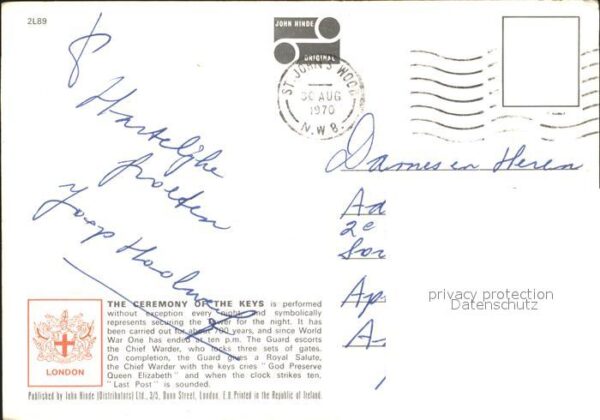 2L89
JOHN HINDE
ORIGINAL
ST. JOHN'S WOOD
30 AUG
1970
N.W.8.
Hartelijke
groeten
Joop
Dames en Heren
2e
privacy protection
Datenschutz
THE CEREMONY OF THE KEYS is performed
without exception every night and symbolically
represents securing the Tower for the night. It has
been carried out for about 700 years, and since World
War One has ended at ten p.m. The Guard escorts
the Chief Warder, who locks three sets of gates.
On completion, the Guard gives a Royal Salute,
the Chief Warder with the keys cries "God Preserve
Queen Elizabeth" and when the clock strikes ten,
"Last Post" is sounded.
LONDON
Published by John Hinde (Distributors) Ltd., 3/5, Dunn Street, London. E.8. Printed in the Republic of Ireland.